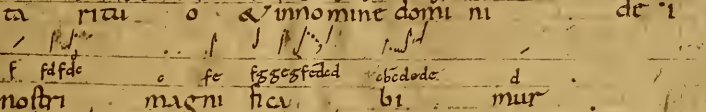 ta ritu o & innomine domi ni de i
f fdfde e fe fggegfedcd cbcdede d
nostri magni fica bi mur